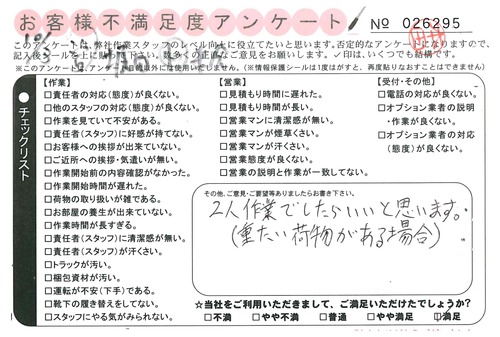 お客様不満足度アンケート
No 026295
このアンケートは、弊社作業スタッフのレベル向上に役立てたいと思います。否定的なアンケートになりますので、
記入後シールを上に
数多くの正直なご意見をお願いします。✓印は、いくつでも結構です。
※このアンケートは、アンケート目的以外には使用いたしません。(※情報保護シールは1度はがすと、再度貼りなおすことはできません)
チェックリスト
【作業】
□責任者の対応(態度)が良くない。
□他のスタッフの対応(態度)が良くない。
□作業を見ていて不安がある。
□責任者(スタッフ)に好感が持てない。
□お客様への挨拶が出来ていない。
□ご近所への挨拶・気遣いが無い。
□作業開始前の内容確認がなかった。
□作業開始時間が遅れた。
□荷物の取り扱いが雑である。
□お部屋の養生が出来ていない。
□作業時間が長すぎる。
□責任者(スタッフ)に清潔感が無い。
□責任者(スタッフ)が汗くさい。
□トラックが汚い。
□梱包資材が汚い。
□運転が不安(下手)である。
□靴下の履き替えをしてない。
□スタッフにやる気がみられない。
【営業】
□見積もり時間に遅れた。
□見積もり時間が長い。
□営業マンに清潔感が無い。
□営業マンが煙草くさい。
□営業マンが汗くさい。
□営業態度が良くない。
□営業の説明と作業が一致してない。
【受付・その他】
□電話の対応が良くない。
□オプション業者の説明
・作業が良くない。
□オプション業者の対応
(態度)が良くない。
その他、ご意見・ご要望等ありましたらお書き下さい。
2人作業でしたらいいと思います。
(重たい荷物がある場合)
☆当社をご利用いただきまして、ご満足いただけたでしょうか?
□不満 □やや不満 □普通 □やや満足 □満足